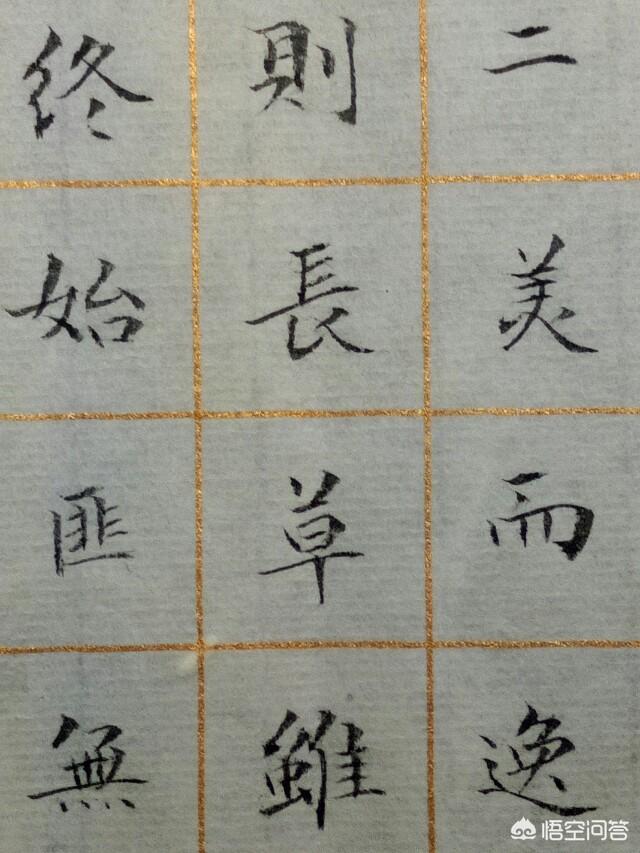 二美而逸
則長草雖
終始匪無
悟空问答